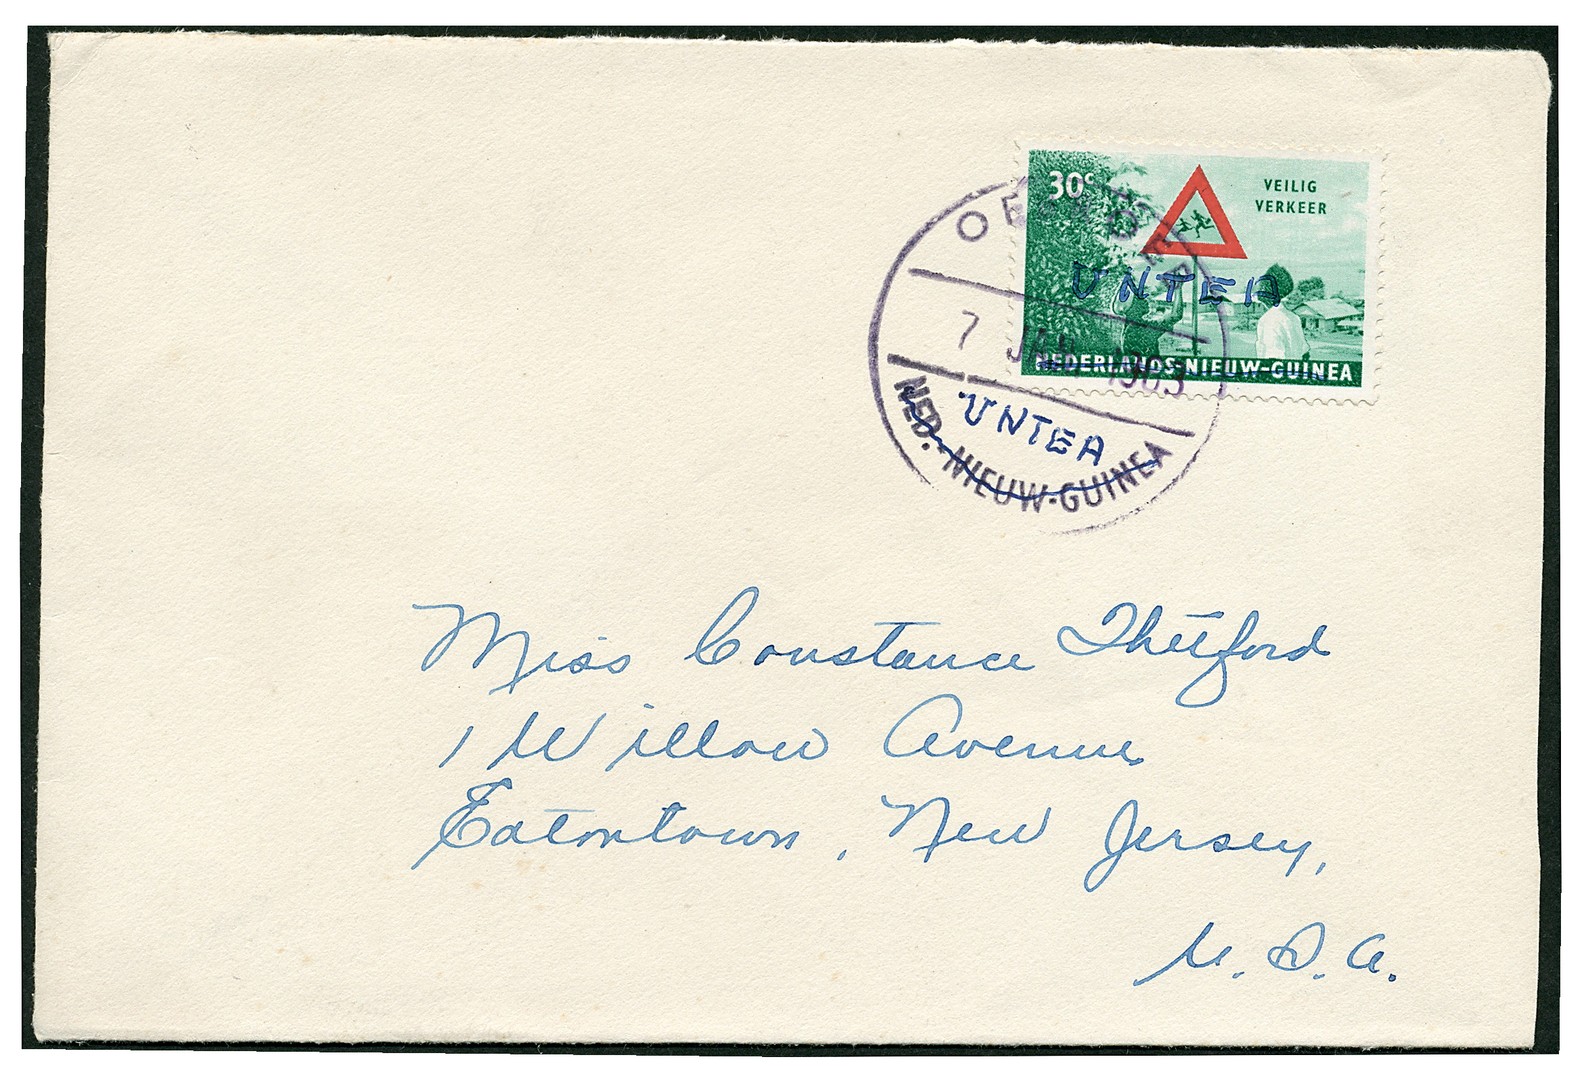 30c
VEILIG
VERKEER
UNTEA
NEDERLANDS-NIEUW-GUINEA
7 JAN 1963
UNTEA
NED.-NIEUW-GUINEA
Miss Constance Thetford
1 Willow Avenue
Eatontown, New Jersey,
U.S.A.